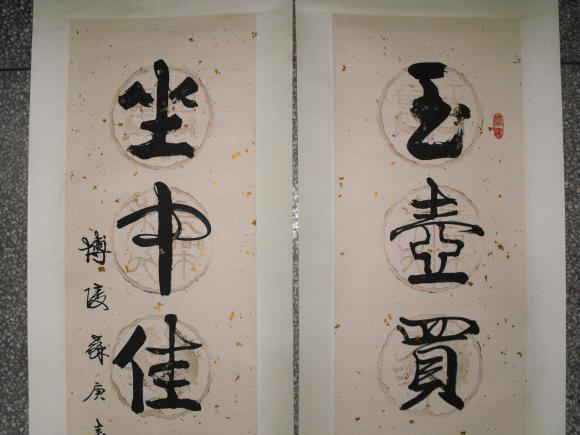 玉壺買
坐中佳
博陵蘇庚春